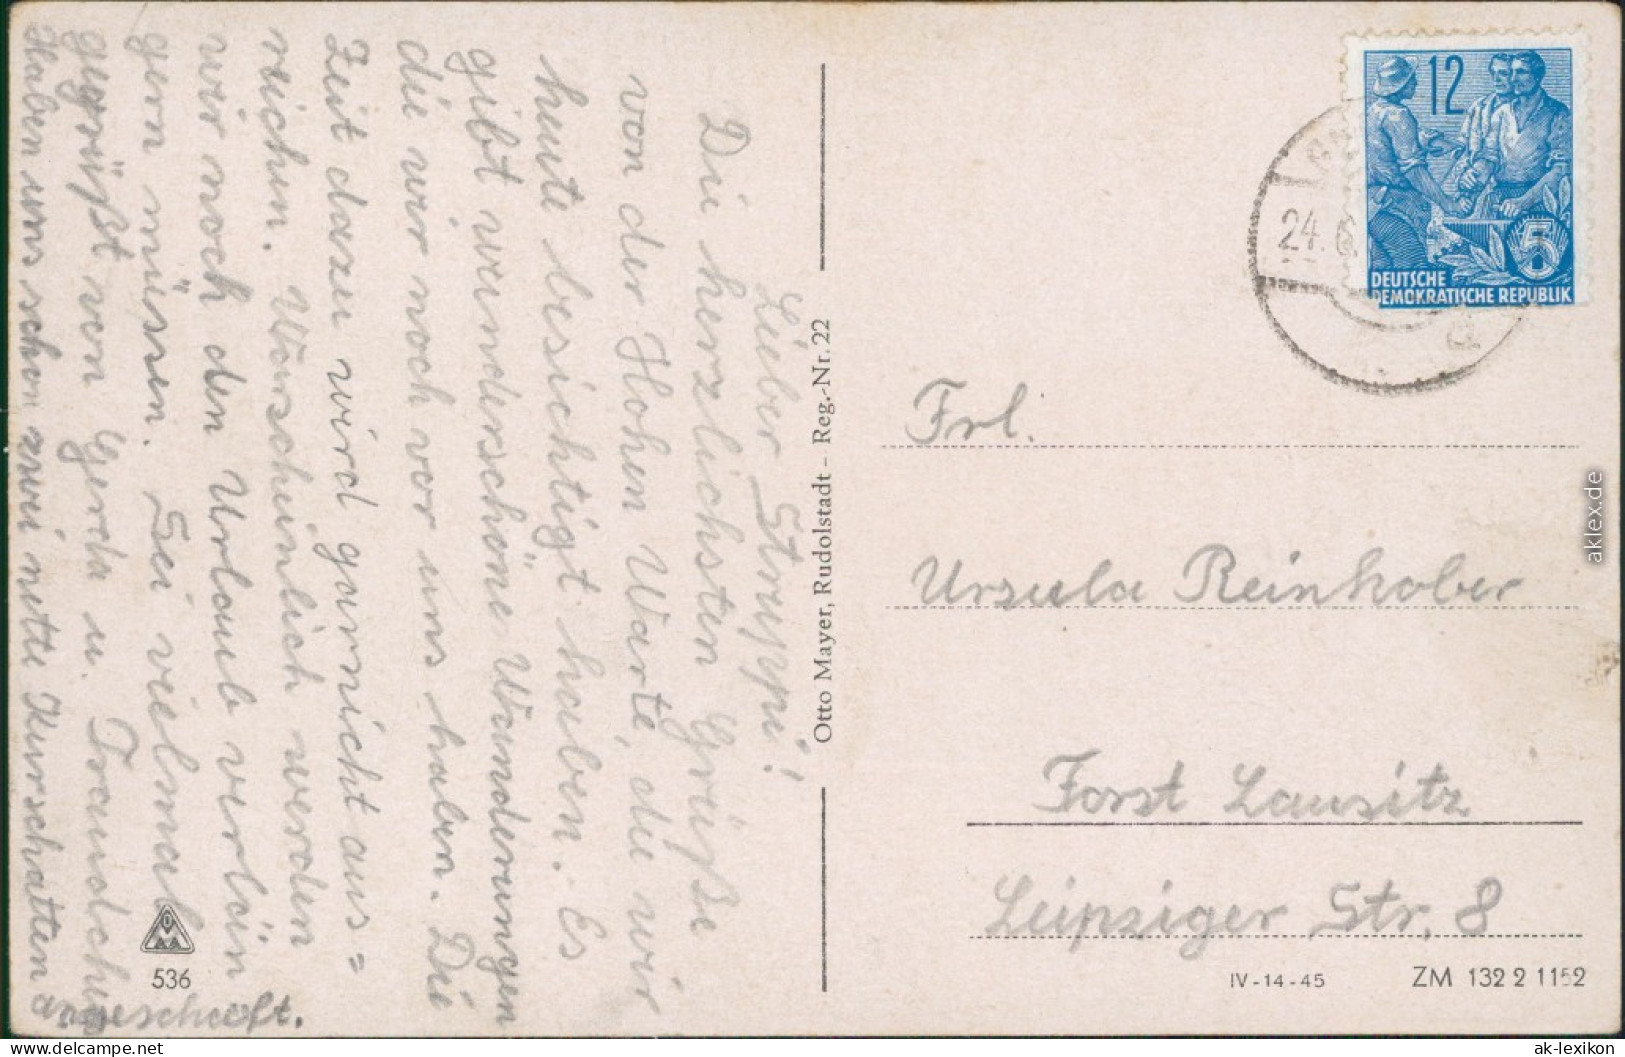 Lieber Struppi!
Die herzlichsten Grüße
von der Hohen Warte, die wir
heute besichtigt haben. Es
gibt wunderschöne Wanderungen
die wir noch vor uns haben. Die
Zeit dazu wird garnicht aus=
reichen. Warscheinlich werden
wir noch den Urlaub verlän
gern müssen. Sei vielmals
gegrüßt von Gerda u. Traudchen
Haben uns schon zwei nette Kurschatten
angeschafft.
536
Otto Mayer, Rudolstadt – Reg.-Nr. 22
12
5
DEUTSCHE
DEMOKRATISCHE REPUBLIK
24.6
Frl.
Ursula Reinkober
Forst Lausitz
Leipziger Str. 8
IV-14-45 ZM 132 2 1152
aklex.de
www.delcampe.net
ak-lexikon